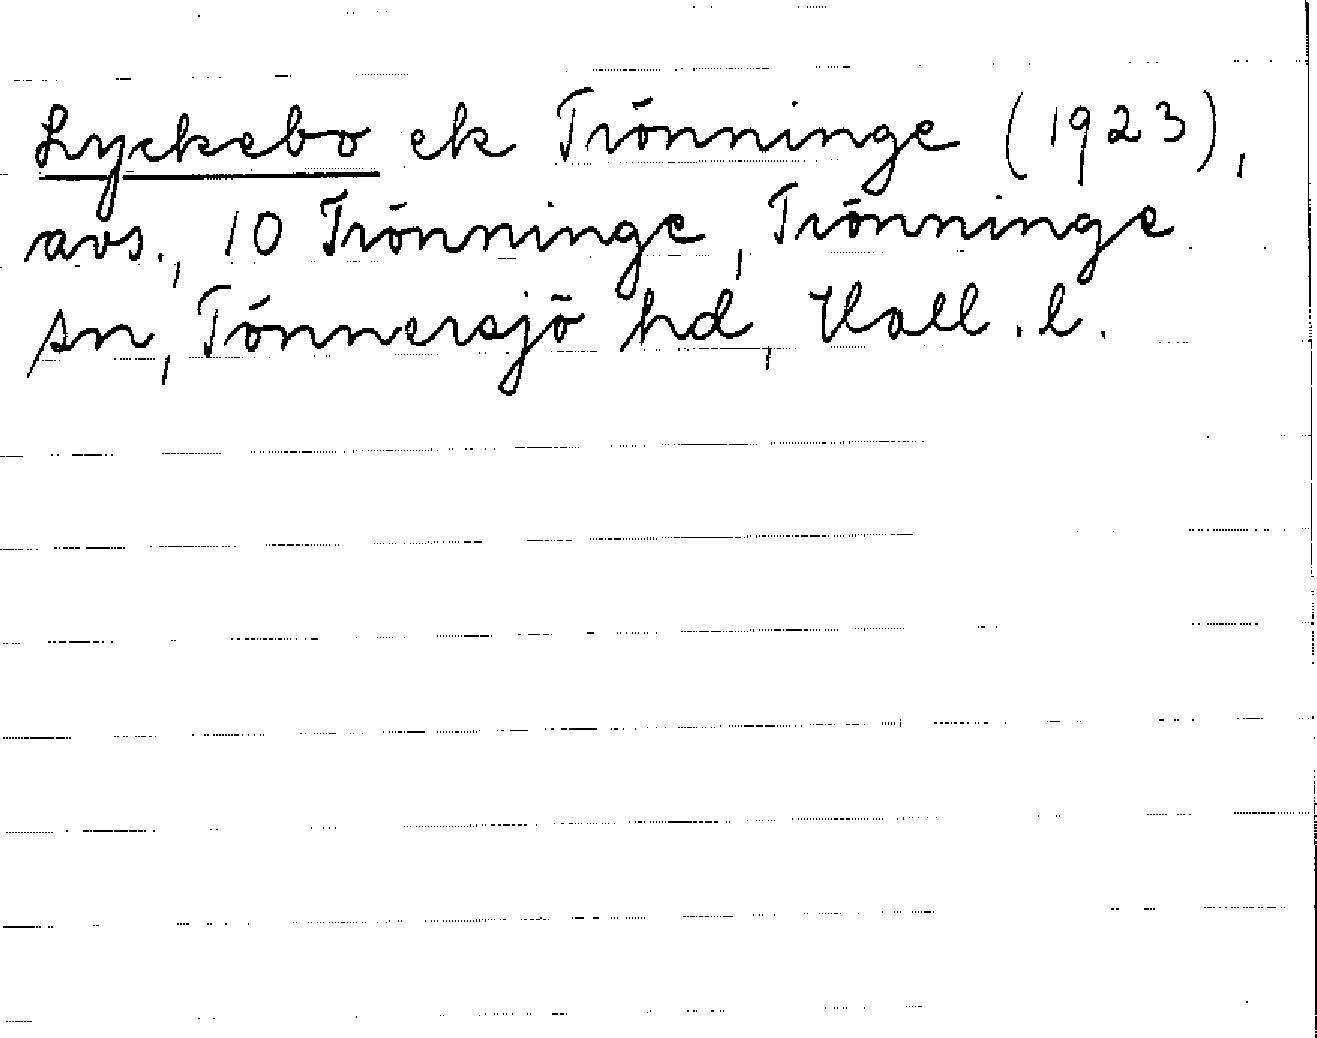 Lyckebo ek Trönninge (1923),
avs., 10 Trönninge, Trönninge
sn, Tönnersjö hd, Hall. l.